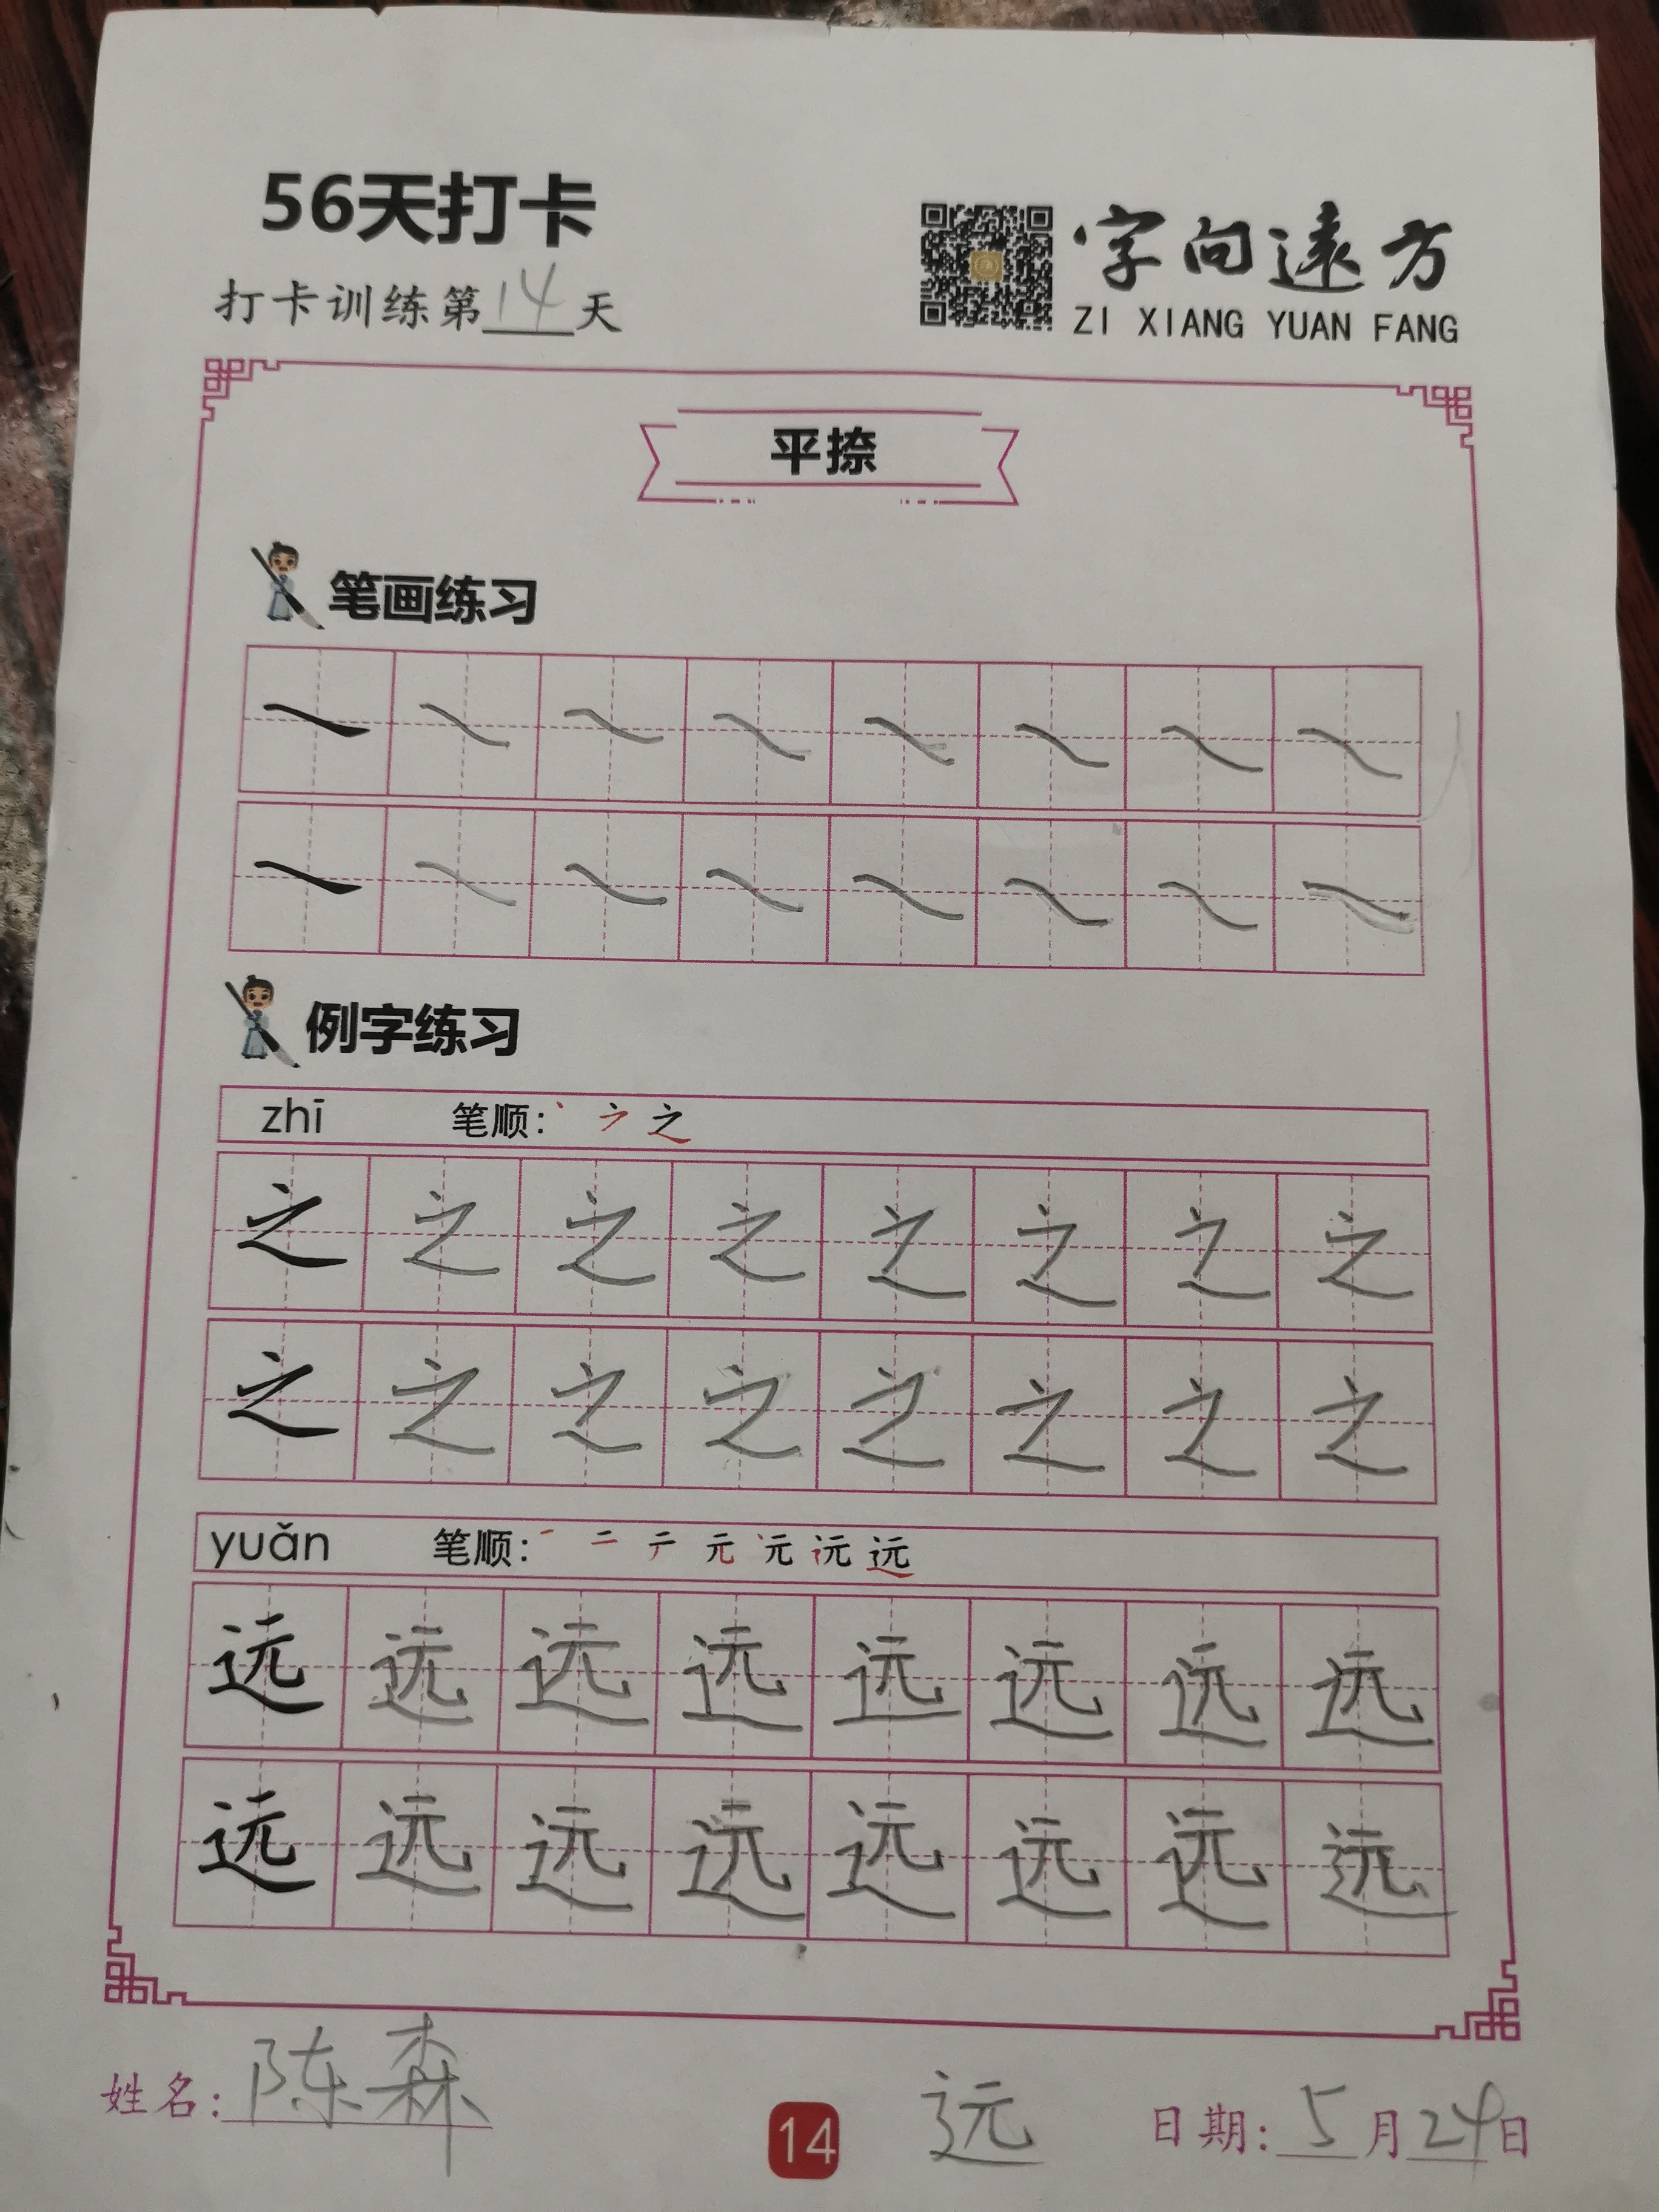 56天打卡
打卡训练第14天
字向遠方
ZI XIANG YUAN FANG
平捺
笔画练习
㇏ ㇏ ㇏ ㇏ ㇏ ㇏ ㇏ ㇏
㇏ ㇏ ㇏ ㇏ ㇏ ㇏ ㇏ ㇏
例字练习
zhī 笔顺: 丶 之
之 之 之 之 之 之 之 之
之 之 之 之 之 之 之 之
yuǎn 笔顺: 一 二 元 远
远 远 远 远 远 远 远 远
远 远 远 远 远 远 远 远
姓名: 陈森
14
远
日期: 5月24日